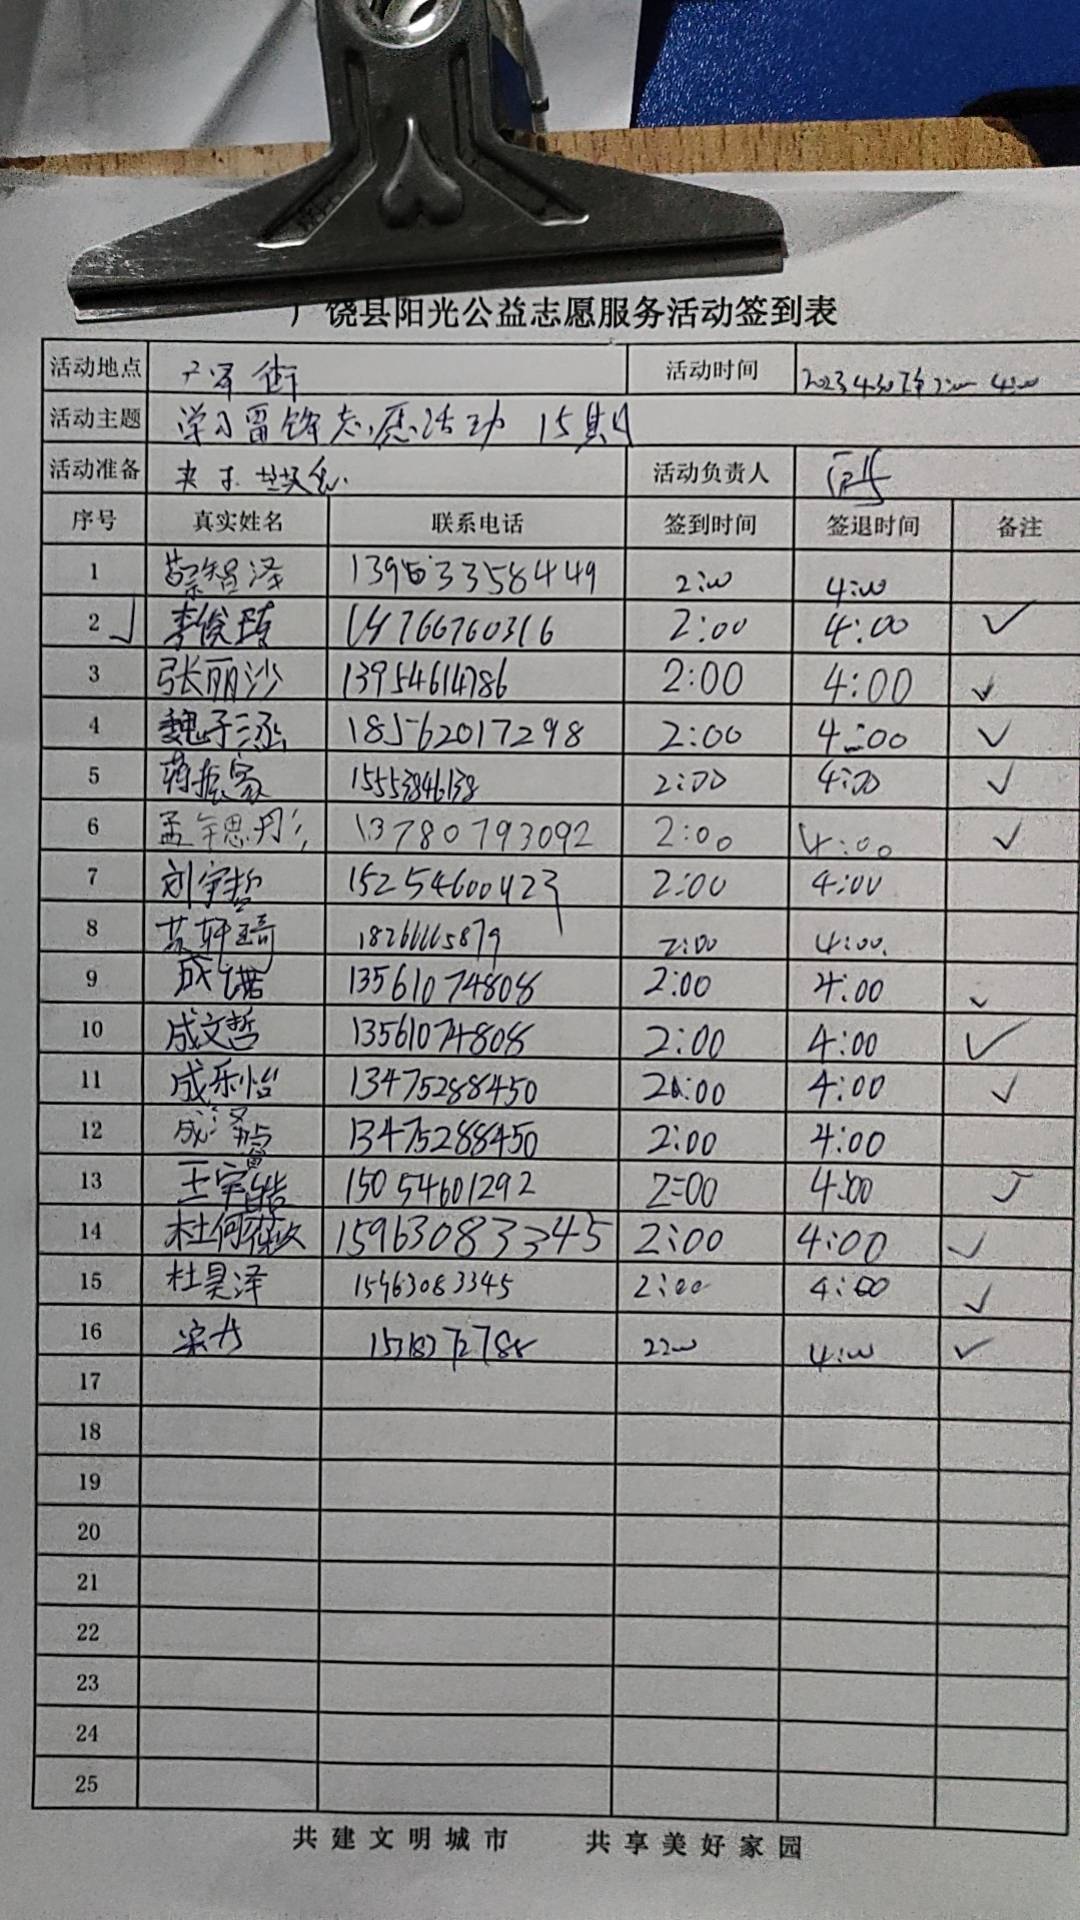 饶县阳光公益志愿服务活动签到表
活动地点 活动时间 2023.4.30 2:00 4:00
活动主题 学习雷锋志愿活动 15期
活动准备 夹子 活动负责人
序号 真实姓名 联系电话 签到时间 签退时间 备注
1 蔡智泽 13953358449 2:00 4:00
2 李俊 766760316 2:00 4:00 ✓
3 张丽沙 13954614786 2:00 4:00 ✓
4 魏子涵 18562017298 2:00 4:00 ✓
5 蒋振家 15553846138 2:00 4:00 ✓
6 孟 思彤 13780793092 2:00 4:00 ✓
7 刘宇哲 15254600423 2:00 4:00
8 轩琦 18261115879 2:00 4:00
9 成诺 13561074808 2:00 4:00 ✓
10 成文哲 13561074808 2:00 4:00 ✓
11 成乐怡 13475288450 2:00 4:00 ✓
12 成泽 13475288450 2:00 4:00
13 王宇皓 15054601292 2:00 4:00 ✓
14 杜何 15963083345 2:00 4:00 ✓
15 杜昊泽 15963083345 2:00 4:00 ✓
16 4:00 ✓
17
18
19
20
21
22
23
24
25
共建文明城市 共享美好家园